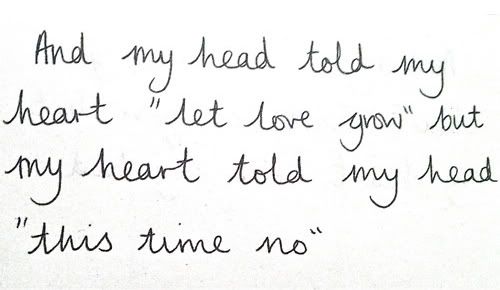 And my head told my
heart "let love grow" but
my heart told my head
"this time no"